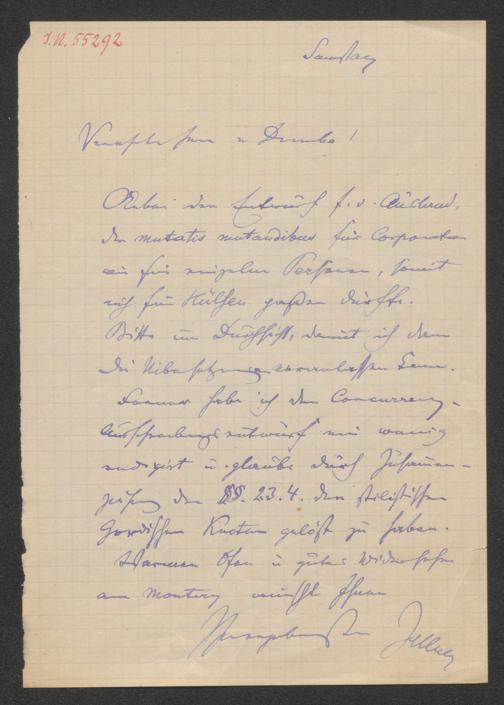 I.N. 55292
Samstag
Verehrter Herr v Dumba!
Anbei der Entwurf f. d. Ausland,
der mutatis mutandibus für Corporationen
wie für einzelne Personen, somit
auch für Hülsen passen dürfte.
Bitte um Durchsicht, damit ich dann
die Übersetzungen veranlassen kann.
Ferner habe ich den Concurrenz-
ausschreibungsentwurf ein wenig
redigirt u glaube durch Zusammen-
ziehung der §§. 23.4. den stilistischen
Gordischen Knoten gelöst zu haben.
Warmen Ofen u gutes Wiedersehen
am Montag wünscht Ihnen